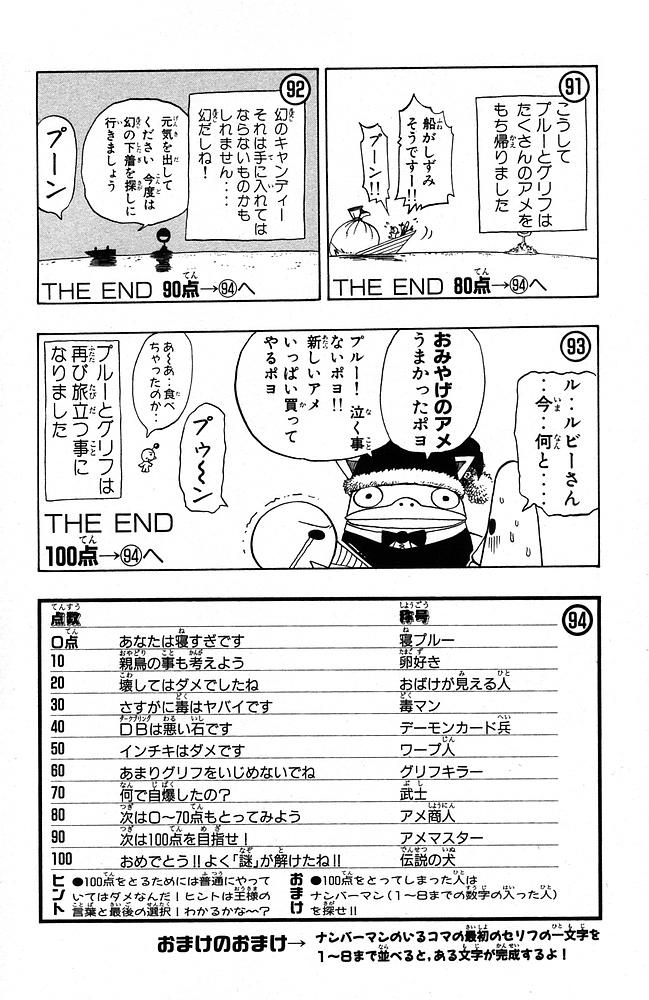 91
こうして
プルーとグリフは
たくさんのアメを
もち帰りました
船がしずみ
そうですー!!
プーン!!
THE END 80点→94へ
92
幻のキャンディー
それは手に入れては
ならないものかも
しれません・・・・
幻だしね!
元気を出して
ください 今度は
幻の下着を探しに
行きましょう
プーン
THE END 90点→94へ
93
ル・・ルビーさん
・・今・・何と・・・・
おみやげのアメ
うまかったポヨ
プルー! 泣く事
ないポヨ!!
新しいアメ
いっぱい買って
やるポヨ
プゥ〜ン
あ〜あ・・食べ
ちゃったのか・・
プルーとグリフは
再び旅立つ事に
なりました
THE END
100点→94へ
94
点数 称号
0点 あなたは寝すぎです 寝プルー
10 親鳥の事も考えよう 卵好き
20 壊してはダメでしたね おばけが見える人
30 さすがに毒はヤバイです 毒マン
40 DBは悪い石です デーモンカード兵
50 インチキはダメです ワープ人
60 あまりグリフをいじめないでね グリフキラー
70 何で自爆したの? 武士
80 次は0〜70点もとってみよう アメ商人
90 次は100点を目指せ! アメマスター
100 おめでとう!!よく「謎」が解けたね!! 伝説の犬
ヒント
●100点をとるためには普通にやって
いてはダメなんだ!ヒントは王様の
言葉と最後の選択!わかるかな〜?
おまけ
●100点をとってしまった人は
ナンバーマン(1〜8までの数字の入った人)
を探せ!!
おまけのおまけ→ ナンバーマンのいるコマの最初のセリフの一文字を
1〜8まで並べると,ある文字が完成するよ!